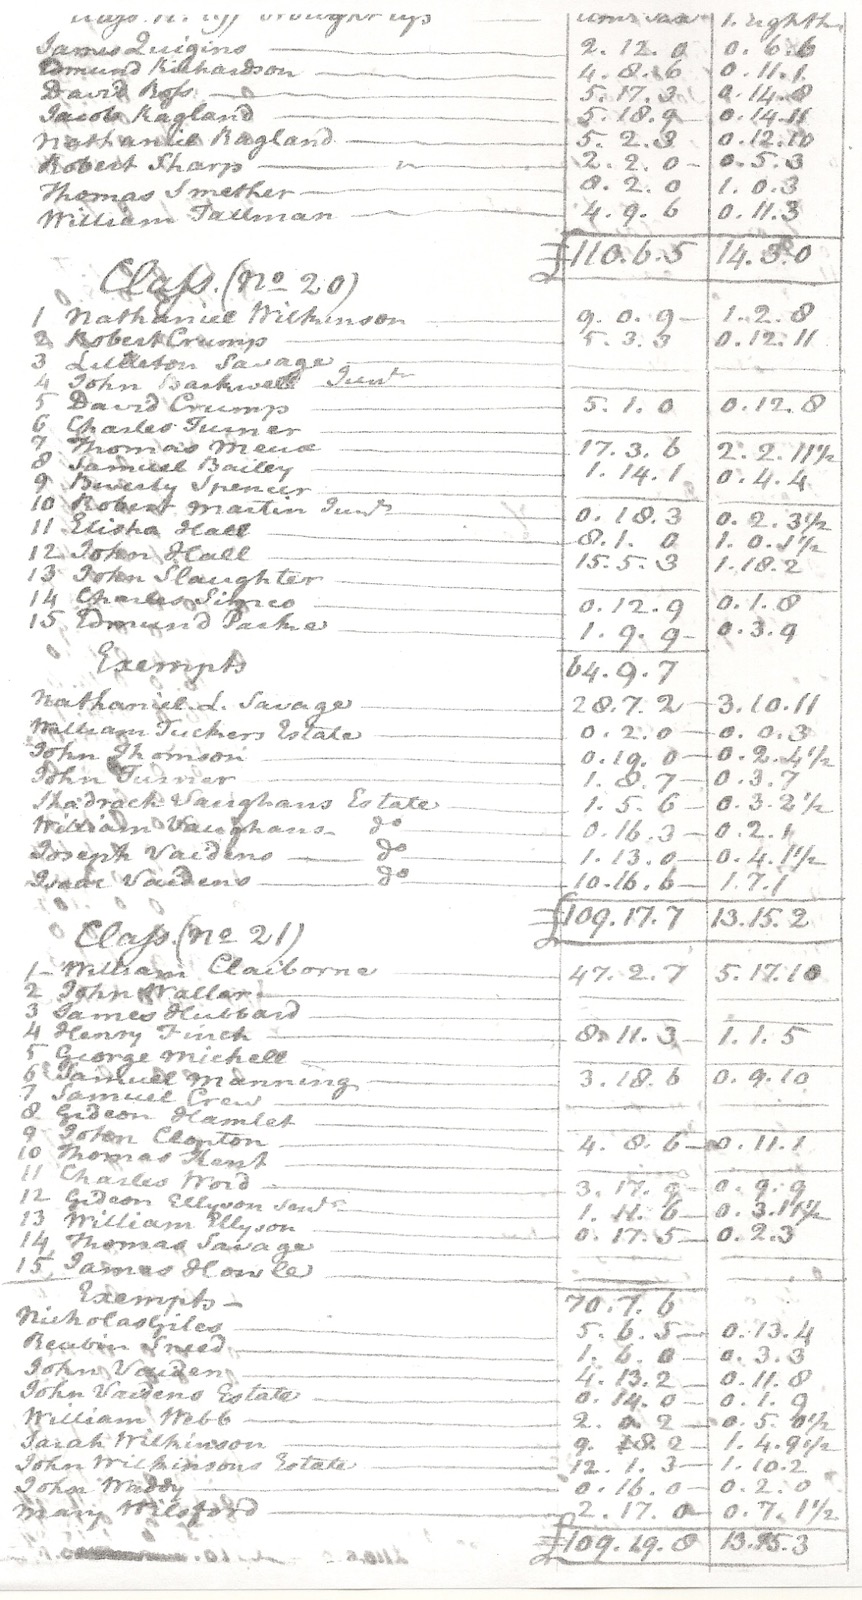 brought up 1. Eighth
James Quigins 2.12.0 0.6.6
Edmund Richardson 4.8.6 0.11.1
David Ross 5.17.3 0.14.8
Jacob Ragland 5.18.9 0.14.11
Nathaniel Ragland 5.2.3 0.12.10
Robert Sharp 2.2.0 0.5.3
Thomas Smether 8.2.0 1.0.3
William Tallman 4.9.6 0.11.3
£110.6.5 14.3.0
Class. (No 20)
1 Nathaniel Wilkinson 9.0.9 1.2.8
2 Robert Crump 5.3.3 0.12.11
3 Littleton Savage
4 John Junr
5 David Crump 5.1.0 0.12.8
6 Charles Turner
7 Thomas Meux 17.3.6 2.2.11½
8 Samuel Bailey 1.14.1 0.4.4
9 Beverly Spencer
10 Robert Martin Junr 0.18.3 0.2.3½
11 Elisha Hall 8.1.0 1.0.1½
12 John Hall 15.5.3 1.18.2
13 John Slaughter
14 Charles Simco 0.12.9 0.1.8
15 Edmund Parke 1.9.9 0.3.9
Exempts 64.9.7
Nathaniel L. Savage 28.7.2 3.10.11
William Tuckers Estate 0.2.0 0.0.3
John Thomson 0.19.0 0.2.4½
John Turner 1.8.7 0.3.7
Shadrach Vaughans Estate 1.5.6 0.3.2½
William Vaughans do 0.16.3 0.2.1
Joseph Vaidens do 1.13.0 0.4.1½
Isaac Vaidens do 10.16.6 1.7.1
£109.17.7 13.15.2
Class. (No 21)
1 William Claiborne 47.2.7 5.17.10
2 John Wallar
3 James Hubbard
4 Henry Finch 8.11.3 1.1.5
5 George Michell
6 Samuel Manning 3.18.6 0.9.10
7 Samuel Crew
8 Gideon Hamlet
9 John Clopton 4.8.6 0.11.1
10 Thomas Kent
11 Charles Word 3.17.9 0.9.9
12 Gideon Ellyson Senr 1.11.6 0.3.11½
13 William Ellyson 0.17.5 0.2.3
14 Thomas Savage
15 James Howle
Exempts 70.7.6
Nicholas Giles 5.6.5 0.13.4
Reabin Sneed 1.6.0 0.3.3
John Vaiden 4.13.2 0.11.8
John Vaidens Estate 0.14.0 0.1.9
William Webb 2.0.2 0.5.0½
Sarah Wilkinson 9.18.2 1.4.9½
John Wilkinsons Estate 12.1.3 1.10.2
John Waddy 0.16.0 0.2.0
Mary Wilsford 2.17.0 0.7.1½
£109.19.8 13.15.3